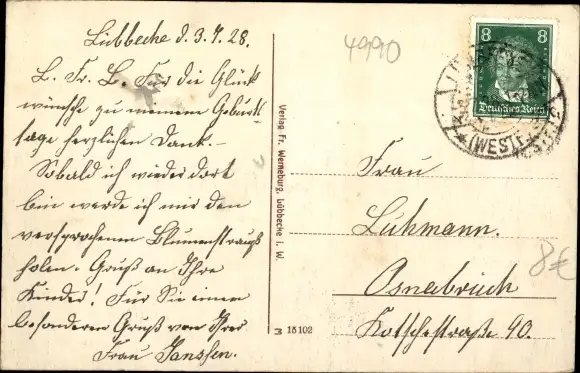 Lübbecke d. 3.7.28.
L. Fr. L. Für die Glück
wünsche zu meinem Geburts
tage herzlichen Dank. –
Sobald ich wieder dort
bin werde ich mir den
versprochenen Blumenstrauß
holen. Gruß an Ihre
Kinder! Für Sie einen
besonderen Gruß von Ihrer
Frau Janssen.
Verlag Fr. Werneburg, Lübbecke i. W.
M 15102
4990
8 8
Deutsches Reich
(WESTF.)
Frau
Luhmann.
Osnabrück
Rotschestraße 90.
8€